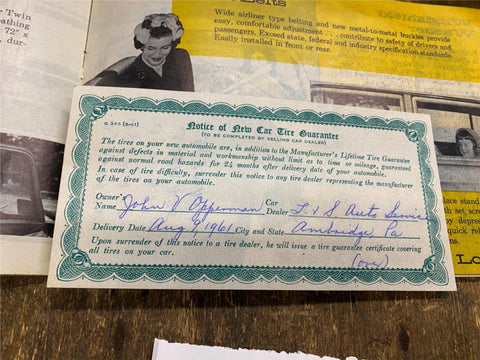 e Twin
athing.
72" x
dur-
Belts
Wide airliner type belting and new metal-to-metal buckles provide
easy, comfortable adjustment . . . contribute to safety of drivers and
passengers. Exceed state, federal and industry specification standards.
Easily installed in front or rear.
G 345 (5-61)
Notice of New Car Tire Guarantee
(TO BE COMPLETED BY SELLING CAR DEALER)
The tires on your new automobile are, in addition to the Manufacturer's Lifetime Tire Guarantee
against defects in material and workmanship without limit as to time or mileage, guaranteed
against normal road hazards for 21 months after delivery date of your automobile.
In case of tire difficulty, surrender this notice to any tire dealer representing the manufacturer
of the tires on your automobile.
Owner's Name John V Opperman Car Dealer L & S Auto Service
Delivery Date Aug 7, 1961 City and State Ambridge Pa
Upon surrender of this notice to a tire dealer, he will issue a tire guarantee certificate covering
all tires on your car.
(over)
set screw
depress
Lo